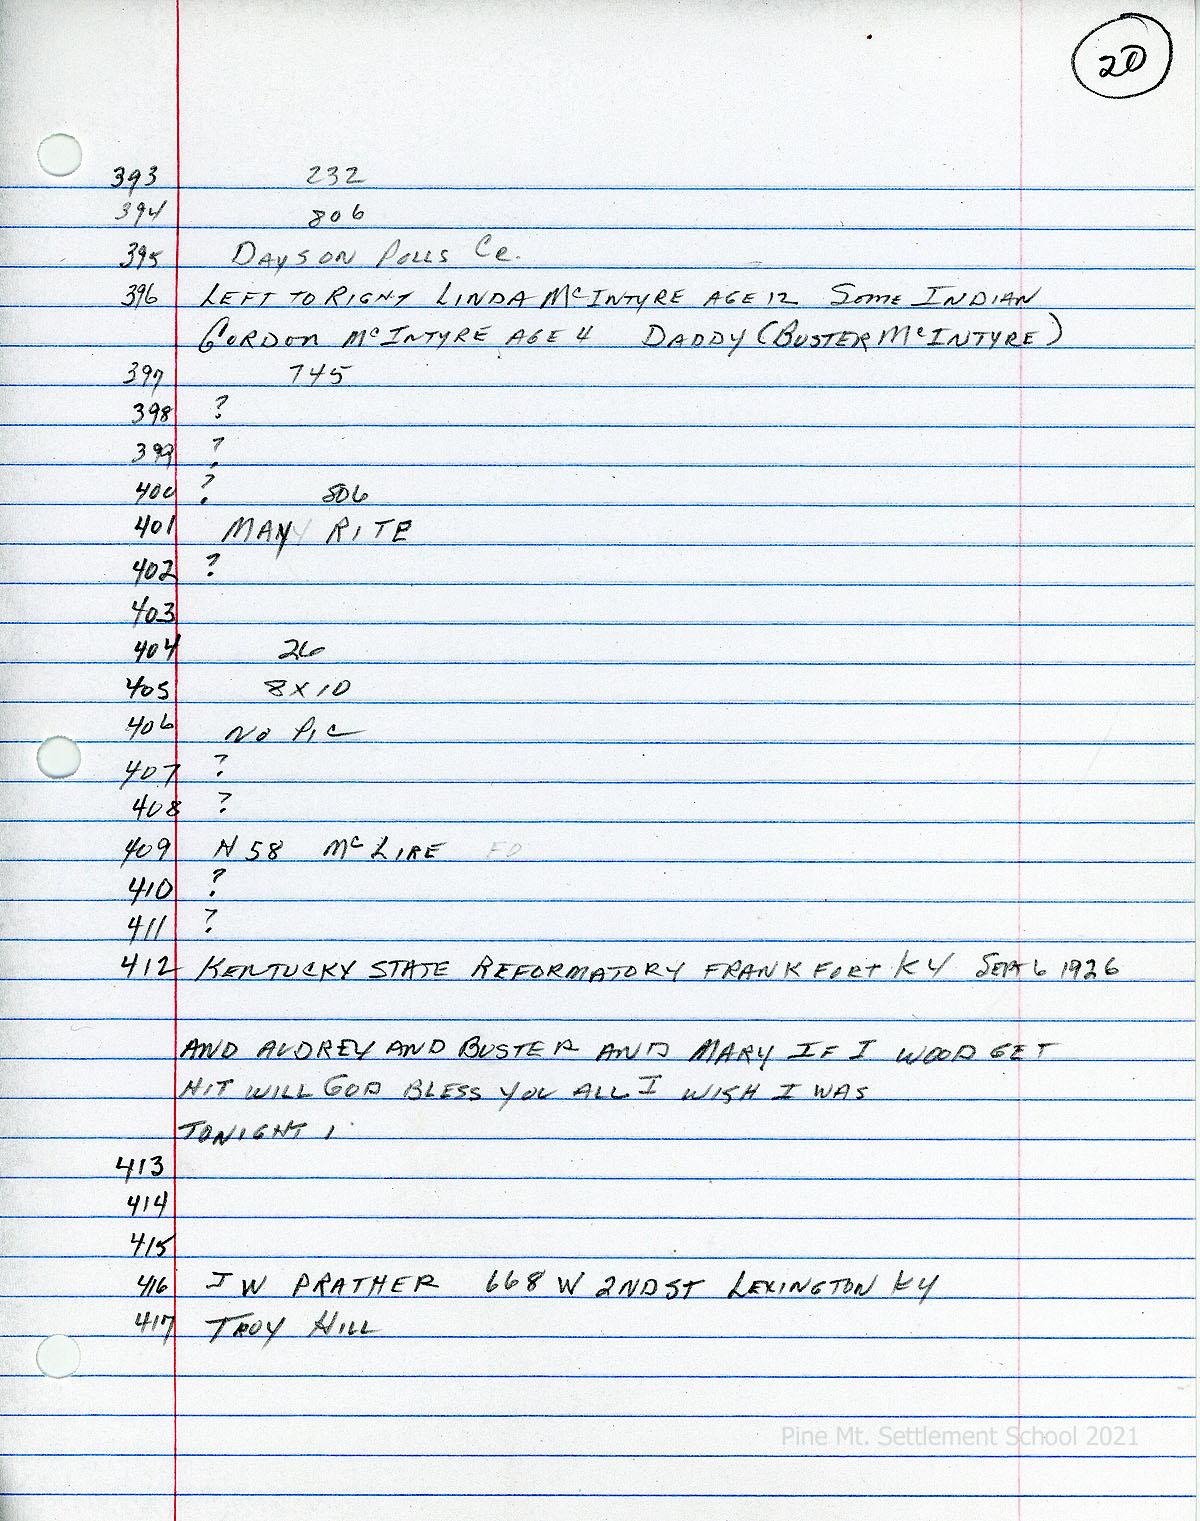 20
393 232
394 806
395 DAYSON POLLS Ce.
396 LEFT TO RIGHT LINDA McINTYRE AGE 12 SOME INDIAN
GORDON McINTYRE AGE 4 DADDY (BUSTER McINTYRE)
397 745
398 ?
399 ?
400 ? 806
401 MANY RITE
402 ?
403
404 26
405 8X10
406 NO PIC
407 ?
408 ?
409 N 58 McLIRE ED
410 ?
411 ?
412 KENTUCKY STATE REFORMATORY FRANKFORT KY SEPT 6 1926
AND AUDREY AND BUSTER AND MARY IF I WOOD GET
HIT WILL GOD BLESS YOU ALL I WISH I WAS
TONIGHT 1
413
414
415
416 J W PRATHER 668 W 2ND ST LEXINGTON KY
417 TROY HILL
Pine Mt. Settlement School 2021